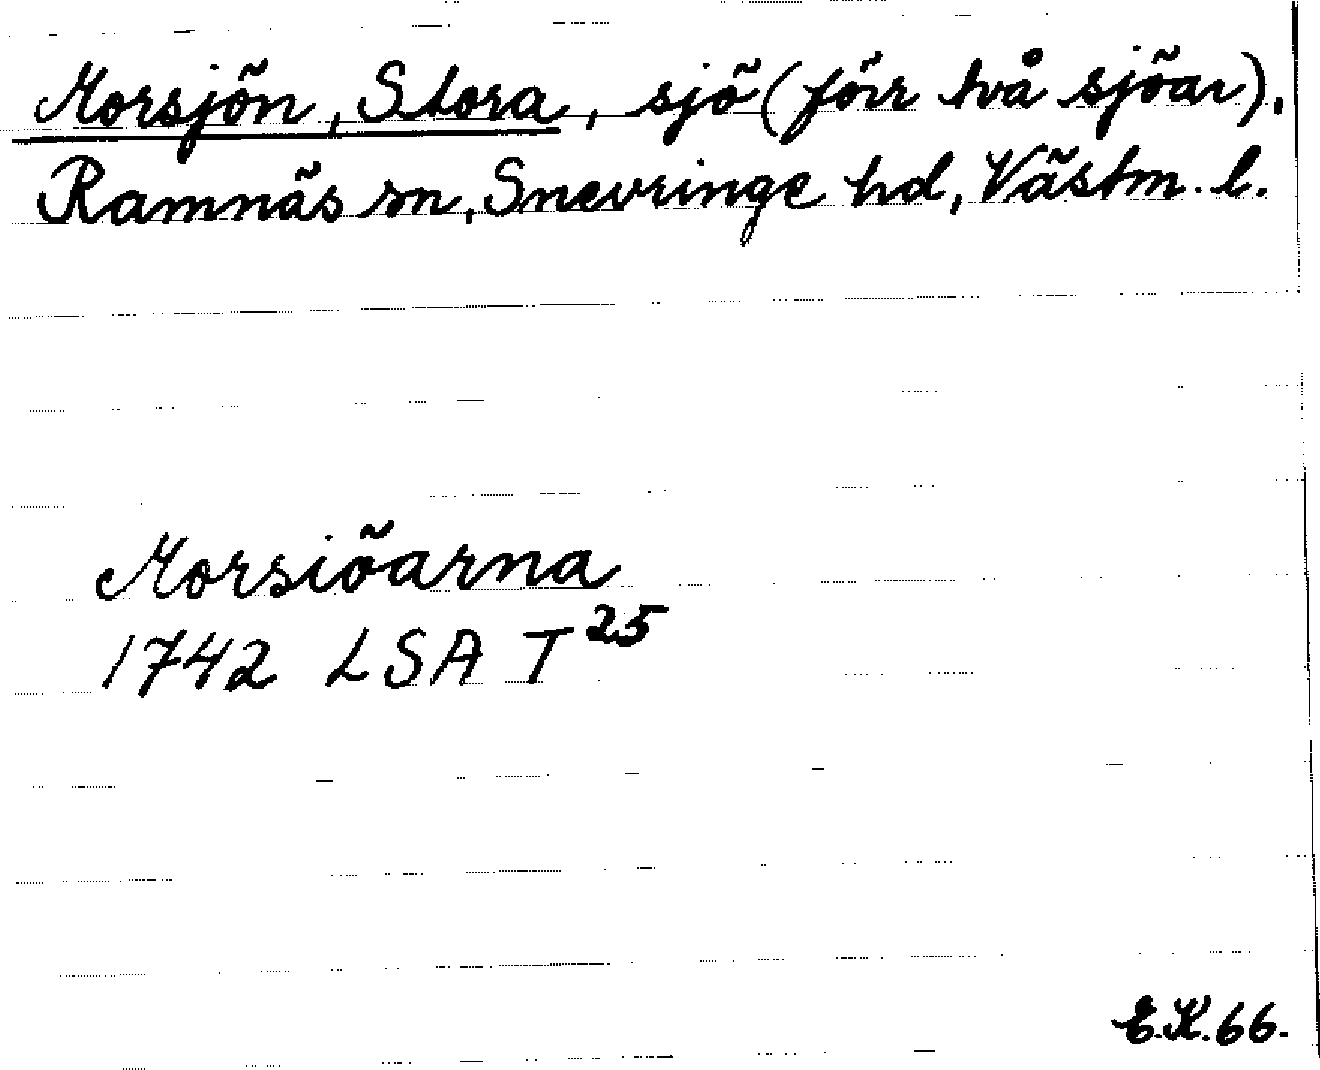 Morsjön, Stora, sjö (förr två sjöar),
Ramnäs sn, Snevringe hd, Västm. l.
Morsiöarna
1742 LSA T 25
E.K. 66.